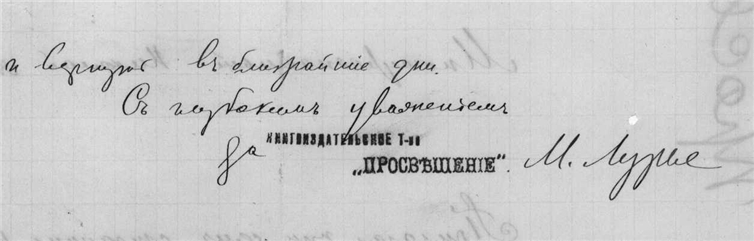 и вернутъ въ ближайшие дни.
Съ глубокимъ уваженіемъ
За КНИГОИЗДАТЕЛЬСКОЕ Т-во
„ПРОСВѢЩЕНІЕ“. М. Лурье